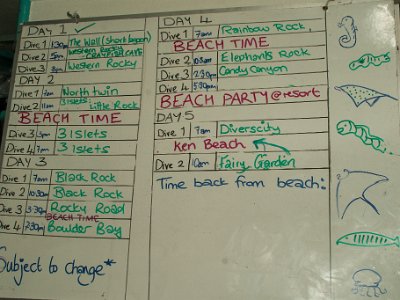 DAY 1
Dive 1 1:30pm The Wall (shark lagoon)
Western Rocky
Dive 2 5pm CRAYFISH CAVE
Dive 3 8pm Western Rocky
DAY 2
Dive 1 7am North twin
Dive 2 11am 3 islets Little Rock
BEACH TIME
Dive 3 5pm 3 islets
Dive 4 7pm 3 islets
DAY 3
Dive 1 7am Black Rock
Dive 2 10:30am Black Rock
Dive 3 3:30pm Rocky Road
BEACH TIME
Dive 4 7:30pm Boulder Bay
Subject to change*
DAY 4
Dive 1 7am Rainbow Rock
BEACH TIME
Dive 2 10:30am Elephants Rock
Dive 3 2:30pm Candy Canyon
Dive 4 5:30pm
BEACH PARTY @ resort
DAY 5
Dive 1 7am Diverscity
Ken Beach
Dive 2 10am Fairy Garden
Time back from beach: